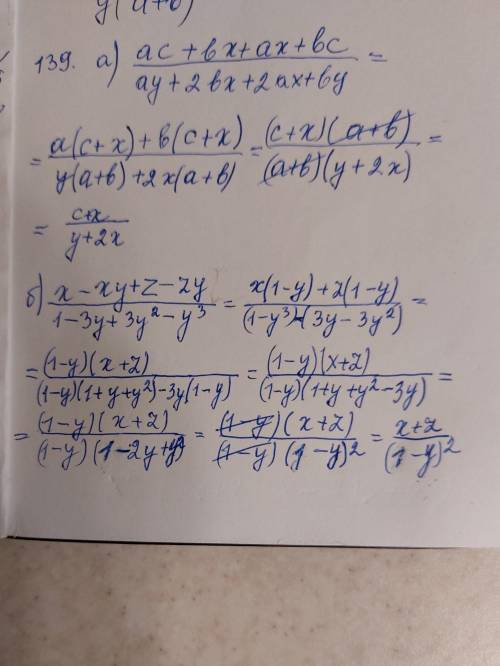 y(a+b)
139. а) (ac+bx+ax+bc)/(ay+2bx+2ax+by) =
= (a(c+x)+b(c+x))/(y(a+b)+2x(a+b)) = ((c+x)(a+b))/((a+b)(y+2x)) =
= (c+x)/(y+2x)
б) (x-xy+z-zy)/(1-3y+3y²-y³) = (x(1-y)+z(1-y))/((1-y³)-(3y-3y²)) =
= ((1-y)(x+z))/((1-y)(1+y+y²)-3y(1-y)) = ((1-y)(x+z))/((1-y)(1+y+y²-3y)) =
= ((1-y)(x+z))/((1-y)(1-2y+y²)) = ((1-y)(x+z))/((1-y)(1-y)²) = (x+z)/(1-y)²